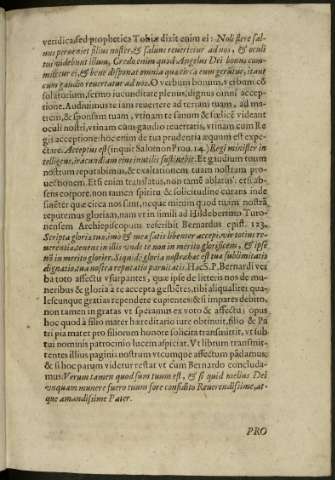 veridica, sed prophetica Tobiæ dixit enim ei: Noli flere sal-
uus perueniet filius noster, & saluus reuertetur ad nos, & oculi
tui videbunt illum, Credo enim quod Angelus Dei bonus com-
mittetur ei, & bene disponat omnia quæ circa eum gerũtur, ita ut
cum gaudio reuertatur ad nos. O verbum bonum, verbum cõ
solatorium, sermo iucunditate plenus, dignus omni accep-
tione. Audiuimus te iam reuertere ad terram tuam, ad ma-
trem, & sponsam tuam, vtinam te sanum & fœlicẽ videant
oculi nostri, vtinam cum gaudio reuertatis, vtinam cum Re
gis acceptione hoc enim de tua prudentia æquum est expe-
ctare. Acceptus est (inquit Salomon Prou. 14.) Regi minister in
telligens, iracundiam eius inutilis sustinebit. Et gaudium tuum
nostrum reputabimus, & exaltationem tuam nostram pro-
uectionem. Etsi enim translatus, non tamẽ ablatus: etsi ab-
sens corpore, non tamen spiritu & solicitudine curans inde
sanctè quæ circa nos sunt, neque mirum quod tuam nostrã
reputemus gloriam, nam vt in simili ad Hildebertum Turo-
nensem Archiepiscopum rescribit Bernardus epist. 123.
Scripta gloria tua, imo & mea satis libenter accepi, vir totius re-
uerentiæ, gaurent in illis vnde te non in merito glorificem, & ipse
nõ in merito glorier. Siquidẽ gloria nostra hæc est tua sublimitatis
dignatio, qua nostra reputatio paruitatis. Hæc S. P. Bernardi ver
ba toto affectu vsurpantes, quæ ipse de litteris nos de mu-
neribus & gloria à te accepta gestiẽtes, tibi aliqualiter qua-
lescunque gratias rependere cupientes & si impares debito,
non tamen in gratas vt speramus ex voto & affectu: opus
hoc quod à filio mater hæreditario iure obtinuit, filio & Pa
tri pia mater pro filiorum honore solicita transmittit, vt sub
tui nominis patrocinio lucem aspiciat. Vt librum transmit-
tentes illius paginis nostrum vtcumque affectum pãdamus:
& si hoc parum videtur restat vt cum Bernardo concluda-
mus. Verum tamen quod sum tuum est, & si quid melius Dei
vnquam munere fuero tuum fore confidito Reuerendissime, at-
que amandissime Pater.
PRO